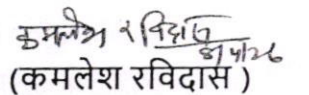 कमलेश रविदास
(कमलेश रविदास)